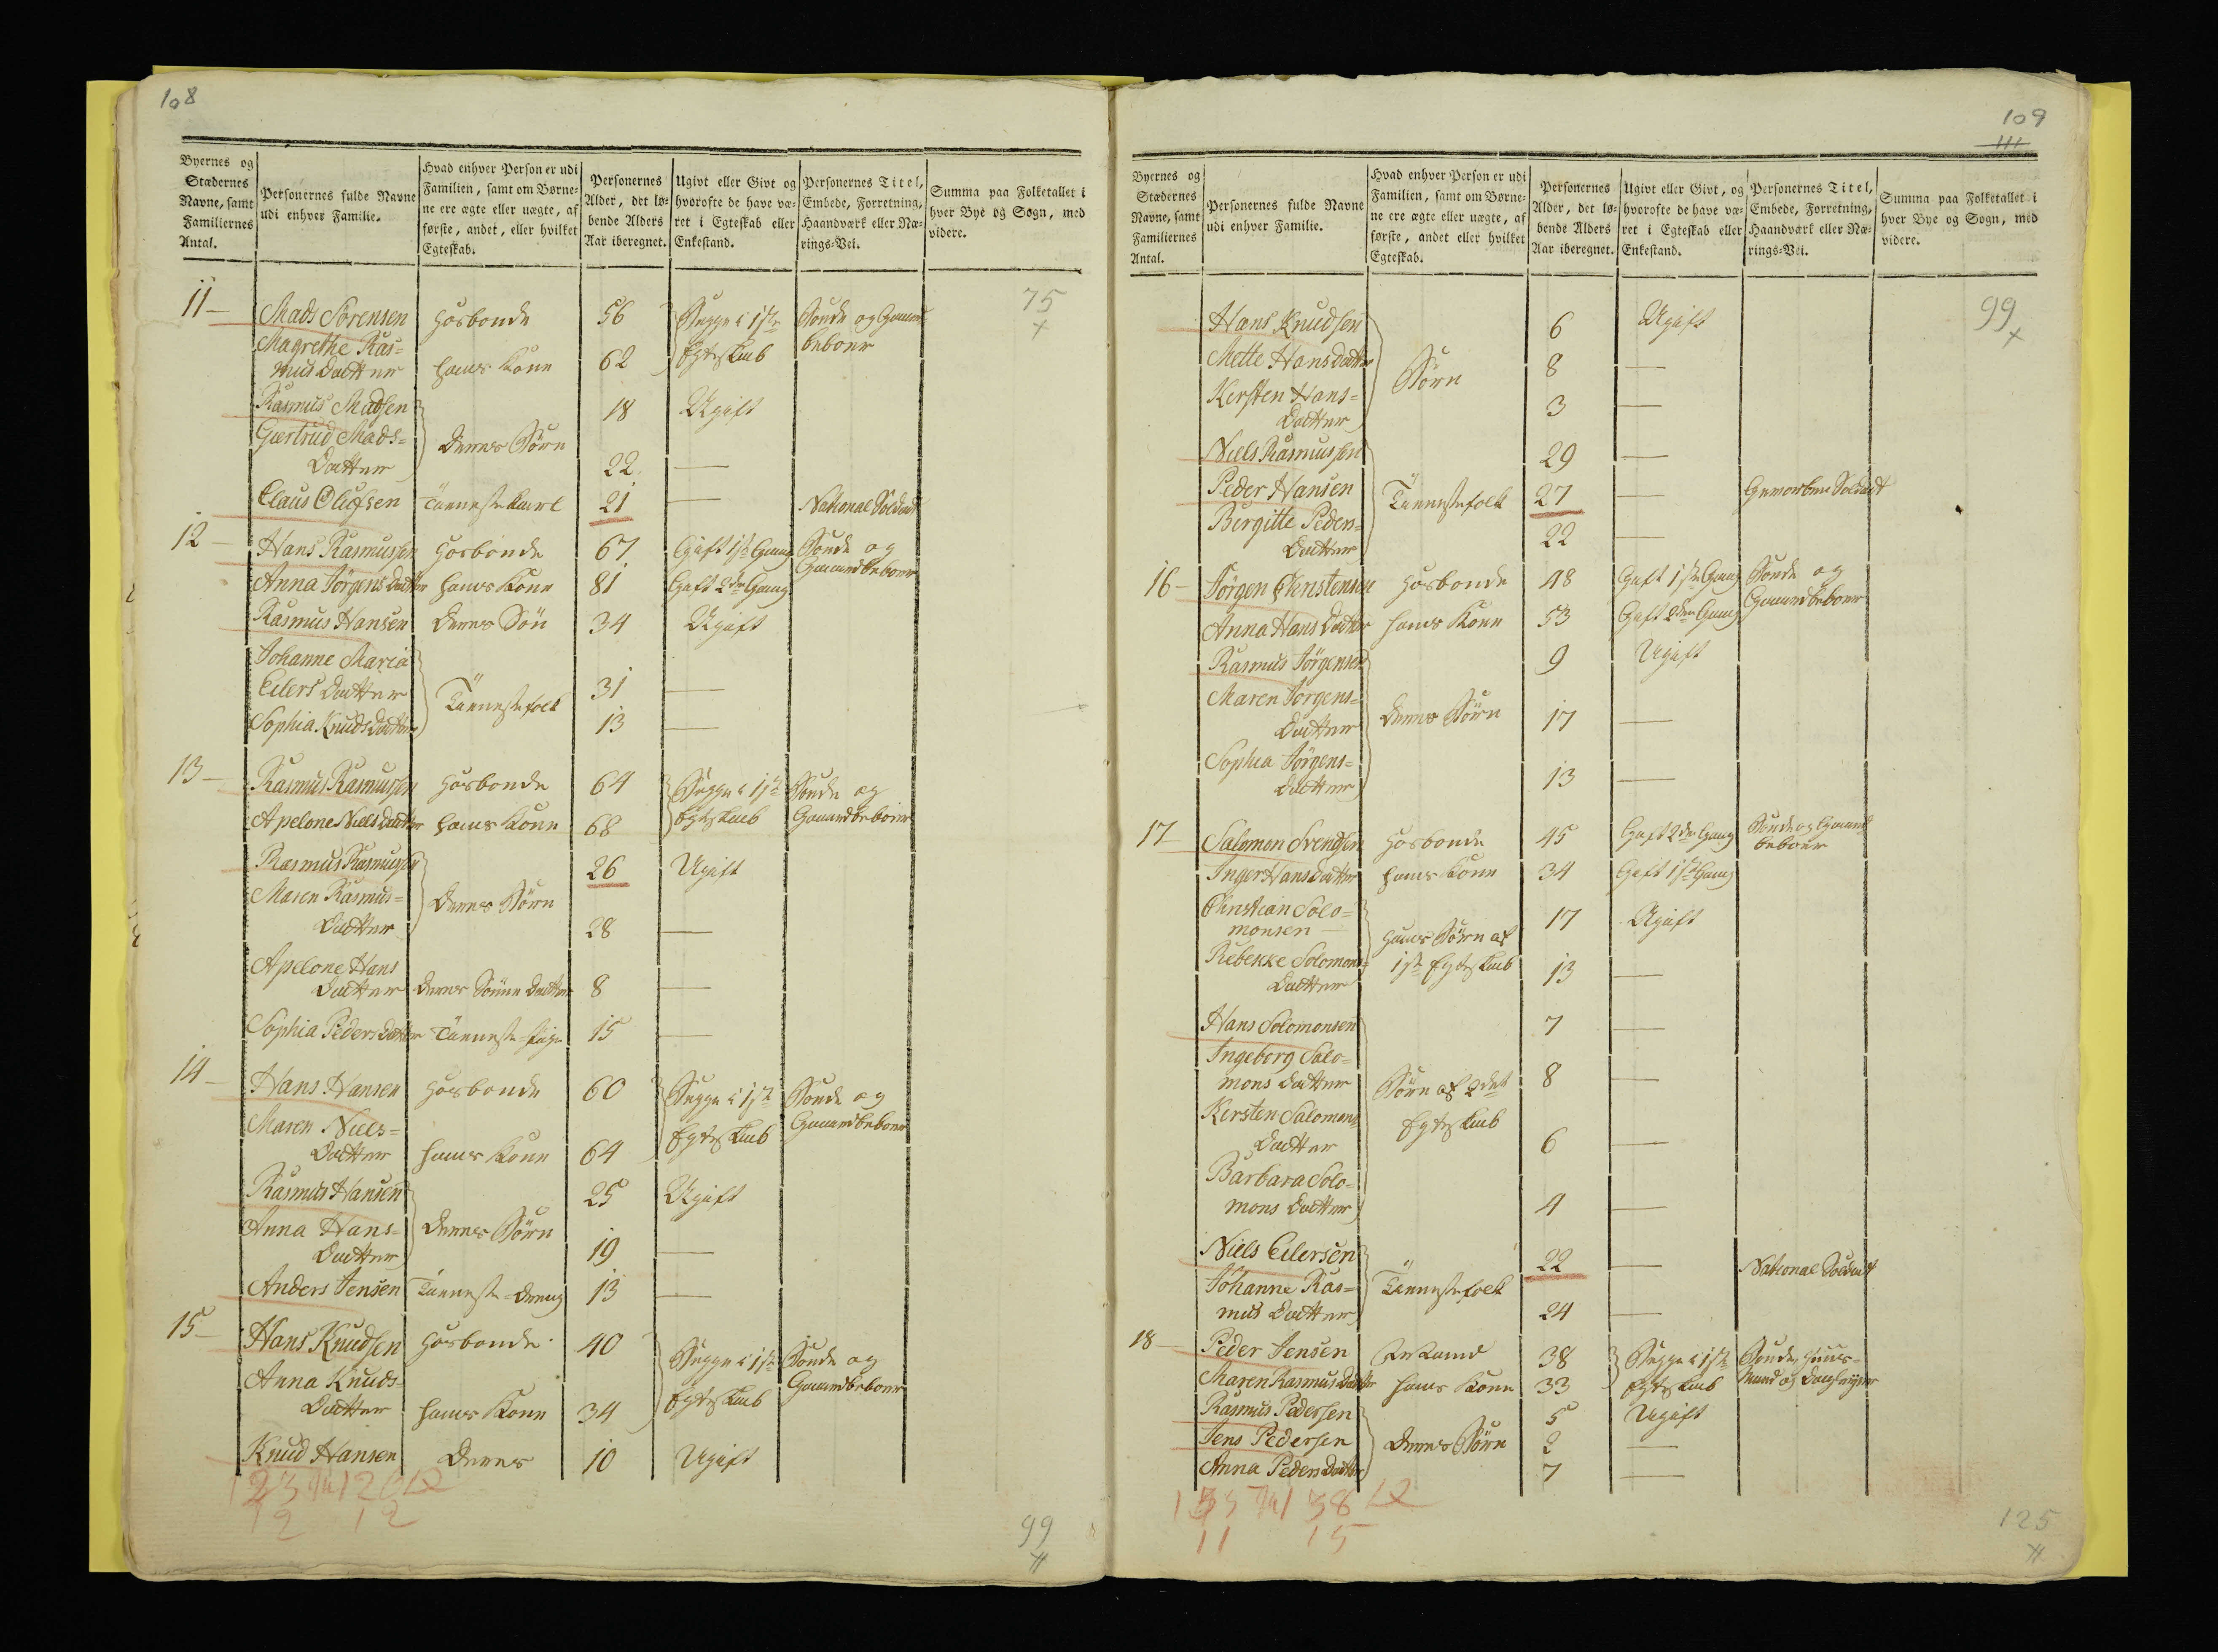 108
Byernes og
Stædernes
Navne, samt
Familiernes
Antal.
Personernes fulde Navne
udi enhver Familie.
Hvad enhver Person er udi
Familien, samt om Børne-
ne ere ægte eller uægte, af
første, andet, eller hvilket
Egteskab.
Personernes
Alder, det lø-
bende Alders
Aar iberegnet.
Ugivt eller Givt og
hvorofte de have væ-
ret i Egteskab eller
Enkestand.
Personernes Titel,
Embede, Forretning,
Haandværk eller Næ-
rings-Vei.
Summa paa Folketallet i
hver Bye og Sogn, med
videre.
75
11 – Mads Sørensen Hosbonde 56 Begge i 1ste Bonde og Gaard
Magrethe Ras= Egteskab beboer
mus Datter hans Kone 62
Rasmus Madsen 18 Ugift
Giertrud Mads= Deres Børn
Datter 22 —
Claus Olufsen Tienestekarl 21 — National Soldat
12 – Hans Rasmussen Hosbonde 67 Gift 1ste Gang Bonde og
Anna Jørgens Datter hans Kone 81 Gift 2den Gang Gaardbeboer
Rasmus Hansen Deres Søn 34 Ugift
Johanne Maria
Eilers Datter Tienestefolk 31 —
Sophia Knuds Datter 13 —
13 – Rasmus Rasmussen Hosbonde 64 Begge i 1ste Bonde og
Apelone Niels Datter hans Kone 68 Egteskab Gaardbeboer
Rasmus Rasmussen 26 Ugift
Maren Rasmus= Deres Børn
Datter 28 —
Apelone Hans
Datter deres Sønne Datter 8 —
Sophia Peders Datter Tieneste-Pige 15 —
14 – Hans Hansen Hosbonde 60 Begge i 1ste Bonde og
Maren Niels= Egteskab Gaardbeboer
Datter hans Kone 64
Rasmus Hansen 25 Ugift
Anna Hans= Deres Børn
Datter 19 —
Anders Jensen Tieneste-Dreng 13 —
15 – Hans Knudsen Hosbonde 40 Begge i 1ste Bonde og
Anna Knuds= Egteskab Gaardbeboer
Datter hans Kone 34
Knud Hansen Deres 10 Ugift
12 12
99
109
111
Byernes og
Stædernes
Navne, samt
Familiernes
Antal.
Personernes fulde Navne
udi enhver Familie.
Hvad enhver Person er udi
Familien, samt om Børne-
ne ere ægte eller uægte, af
første, andet eller hvilket
Egteskab.
Personernes
Alder, det lø-
bende Alders
Aar iberegnet.
Ugivt eller Givt, og
hvorofte de have væ-
ret i Egteskab eller
Enkestand.
Personernes Titel,
Embede, Forretning,
Haandværk eller Næ-
rings-Vei.
Summa paa Folketallet i
hver Bye og Sogn, med
videre.
99
Hans Knudsen 6 Ugift
Mette Hansdatter Børn 8 —
Kersten Hans=
Datter 3 —
Niels Rasmussen 29 —
Peder Hansen Tienestefolk 27 — Gevorben Soldat
Birgitte Peders=
Datter 22 —
16 – Jørgen Christensen Hosbonde 48 Gift 1ste Gang Bonde og
Anna Hans Datter hans Kone 53 Gift 2den Gang Gaardbeboer
Rasmus Jørgensen 9 Ugift
Maren Jørgens=
Datter Deres Børn 17 —
Sophia Jørgens=
Datter 13 —
17 – Salomon Svendsen Hosbonde 45 Gift 2den Gang Bonde og Gaard
beboer
Inger Hans Datter hans Kone 34 Gift 1ste Gang
Christian Solo=
monsen Hans Børn af 17 Ugift
Rebekke Solomons= 1ste Egteskab
Datter 13 —
Hans Solomonsen 7 —
Ingeborg Salo=
mons Datter Børn af 2det 8 —
Kersten Salomons Egteskab
Datter 6 —
Barbara Solo=
mons Datter 4 —
Niels Eilersen 22 — National Soldat
Johanne Ras= Tienestefolk
mus Datter 24 —
18 – Peder Jensen 38 Begge i 1ste Bonde, Huus-
Maren Rasmus Datter hans Kone 33 Egteskab mand og
Rasmus Pedersen 5 Ugift
Jens Pedersen Deres Børn 2 —
Anna Peders Datter 7 —
11 15
125